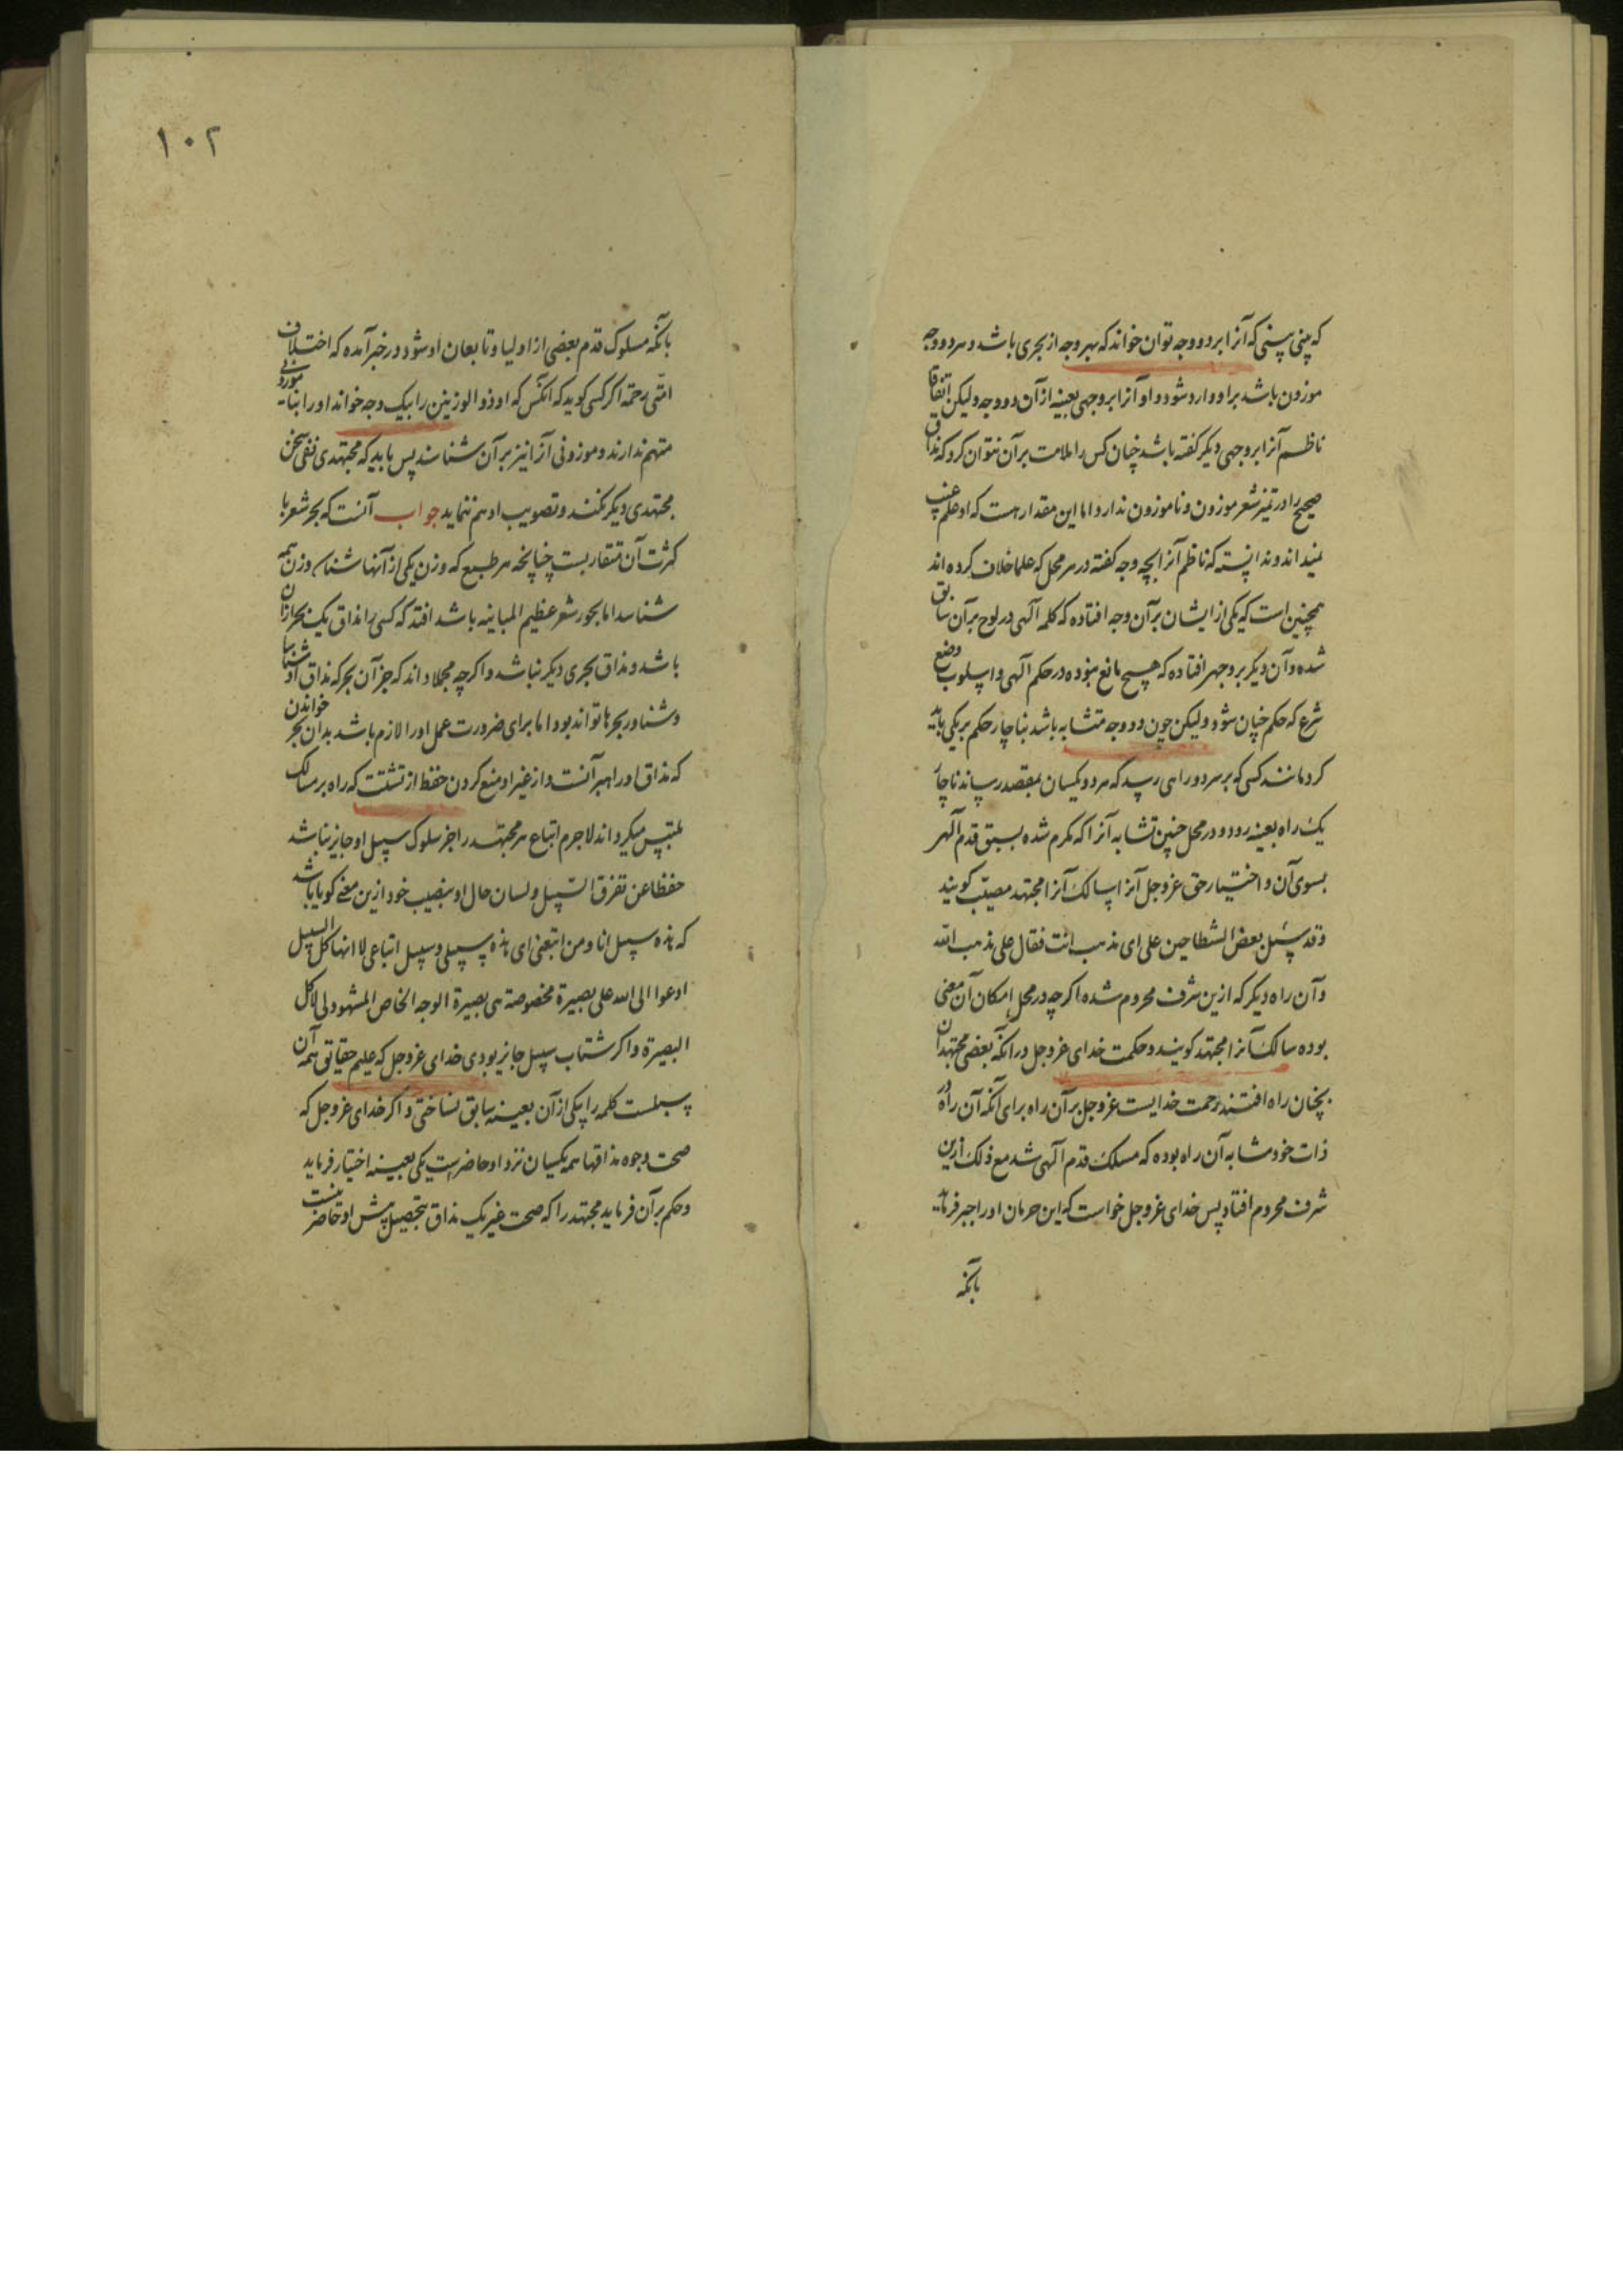 که چنین بیتی که آنرا بر دو وجه توان خواند که بهر وجه از بحری باشد و هر دو وجه
موزون باشد بر او وارد شود و او آنرا بر وجهی بعینه از آن دو وجه ولیکن اتفاقا
ناظم آنرا بر وجهی دیگر گفته باشد چنان کس را ملامت بر آن نتوان کرد که مذاق
صحیح را در تمیز شعر موزون و ناموزون ندارد اما این مقدار هست که او علم غیب
نمیداند و ندانسته که ناظم آنرا بچه وجه گفته در هر محل که علما خلاف کرده اند
همچنین است که یکی از ایشان بر آن وجه افتاده که کلمه آلهی در لوح بر آن سابق
شده و آن دیگر بر وجهی افتاده که هیچ مانع نبوده در حکم آلهی و اسلوب وضع
شرع که حکم چنان شود ولیکن چون دو وجه متشابه باشد بناچار حکم بر یکی باید
کرد مانند کسی که بر سر دو راهی رسید که هر دو یکسان بمقصد رساند ناچار
یک راه بعینه رود و در محل چنین تشابه آنرا که مکرم شده بسبق قدم آلهی
بسوی آن و اختیار حق عز و جل آنرا سالک آنرا مجتهد مصیب کویند
و قد سئل بعض الشطاحین علی ای مذهب انت فقال علی مذهب الله
و آن راه دیگر که ازین شرف محروم شده اگرچه در محل امکان آن معنی
بوده سالک آنرا مجتهد کویند و حکمت خدای عز و جل در آنکه بعضی مجتهدان
بچنان راه افتند رحمت خدایست عز و جل بر آن راه برای آنکه آن راه در
ذات خود مشابه آن راه بوده که مسلک قدم آلهی شد مع ذلک ازین
شرف محروم افتاد پس خدای عز و جل خواست که این حرمان او را جبر فرماید
بآنکه
١٠٢
بآنکه مسلوک قدم بعضی از اولیا و تابعان او شود در خبر آمده که اختلاف
امتی رحمة اکر کسی کوید که آنکس که او ذو الوزنین را بیک وجه خواند او را بنا موزونی
متهم ندارند و موزونی آنرا نیز بر آن شناسند پس باید که مجتهدی نفی سخن
مجتهدی دیگر نکند و تصویب او هم نماید جواب آنست که بحر شعر با
کثرت آن متقاربست چنانچه هر طبع که وزن یکی از آنها شناسد وزن همه
شناسد اما بحور شعر عظیم المباینه باشد افتد که کسی را مذاق یک بحر از آن
باشد و مذاق بحری دیگر نباشد و اگرچه مجملا داند که جز آن بحر که مذاق او شناسا
و شناور بحرها تواند بود اما برای ضرورت عمل او را لازم باشد بدان بحر خواندن
که مذاق او راهبر آنست و از غیر او منع کردن حفظ از تشتت که راه بر سالک
ملتبس میکرداند لاجرم اتباع هر مجتهد را جز سلوک سبیل او جایز نباشد
حفظا عن تفرق السبیل و لسان حال او بنصیب خود ازین معنی کویا باشد
که هذه سبیل انا و من اتبعنی ای هذه سبیلی و سبیل اتباعی لا انها کل السبیل
ادعوا الی الله علی بصیرة مخصوصة هی بصیرة الوجه الخاص المشهود لی لا کل
البصیرة و اکر شتاب سبیل جایز بودی خدای عز و جل که علیم حقایق همه آن
سبلست کلمه را یکی از آن بعینه سابق نساختی و اکر خدای عز و جل که
صحت وجوه مذاقها همه یکسان نزد او حاضرست یکی بعینه اختیار فرماید
و حکم بر آن فرماید مجتهد را که صحت غیر یک مذاق بتحصیل پیش او حاضر نیست